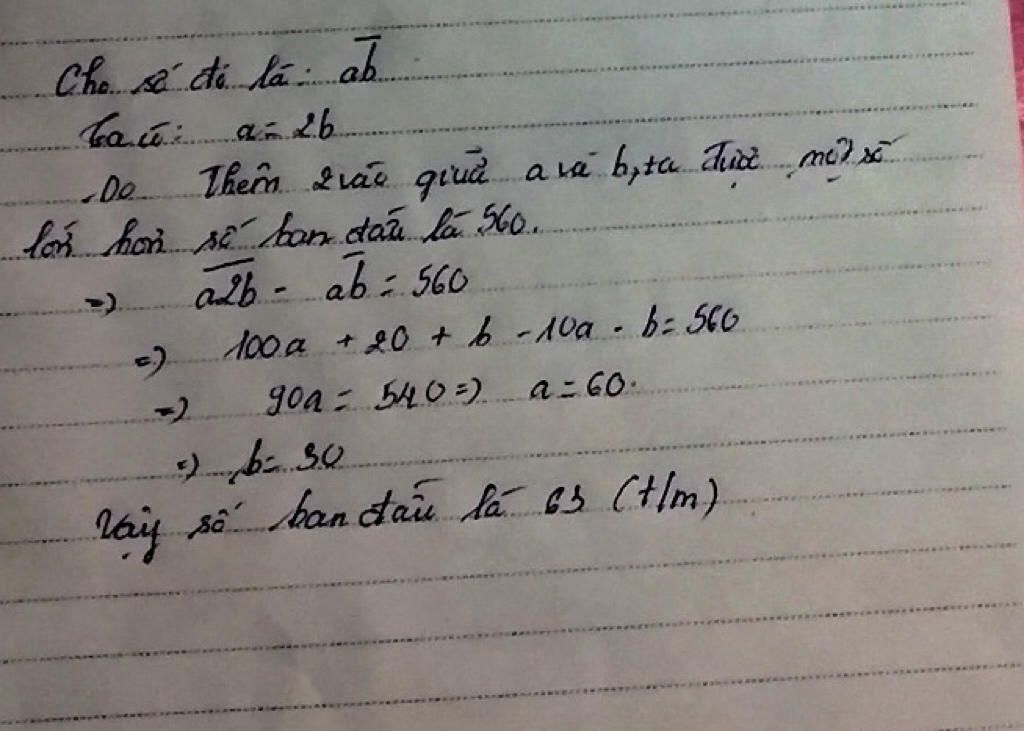 Cho số đó là: \overline{ab}
Ta có: a = 2b
- Do Thêm 2 vào giữa a và b, ta được một số
lớn hơn số ban đầu là 560.
=) \overline{a2b} - \overline{ab} = 560
=) 100a + 20 + b - 10a - b = 560
=) 90a = 540 =) a = 60.
=) b = 30
Vậy số ban đầu là 63 (t/m)